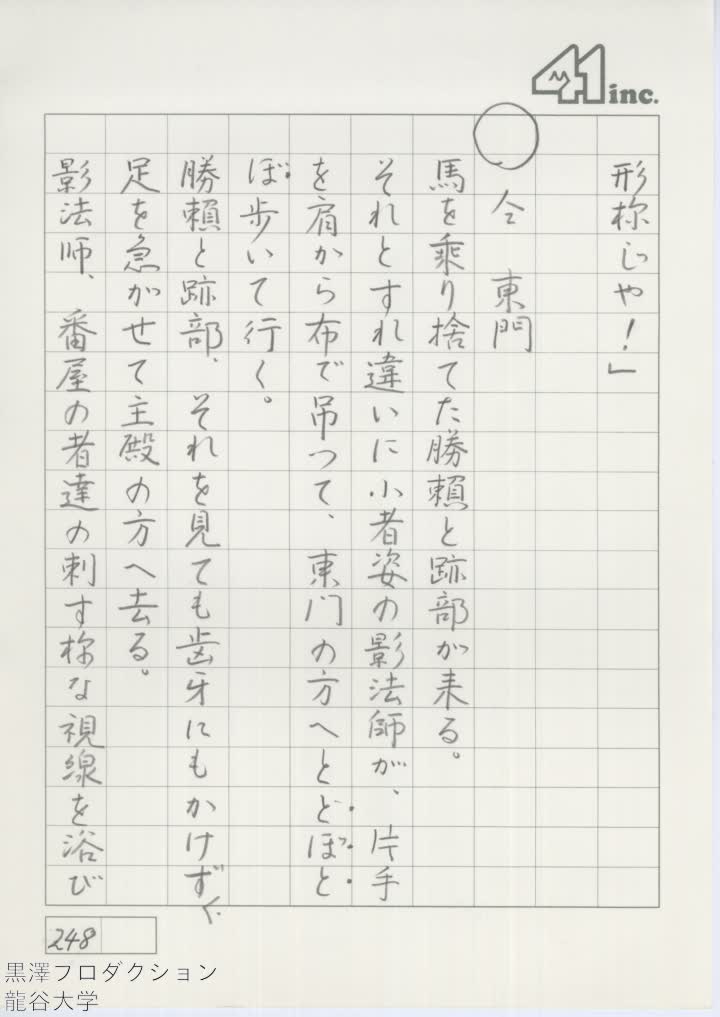 41 inc.
形様じゃ!」
○ 仝 東門
馬を乗り捨てた勝頼と跡部が来る。
それとすれ違いに小者姿の影法師が、片手
を肩から布で吊つて、東門の方へとどぼと
ぼ歩いて行く。
勝頼と跡部、それを見ても歯牙にもかけず、
足を急がせて主殿の方へ去る。
影法師、番屋の者達の刺す様な視線を浴び
248
黒澤プロダクション
龍谷大学